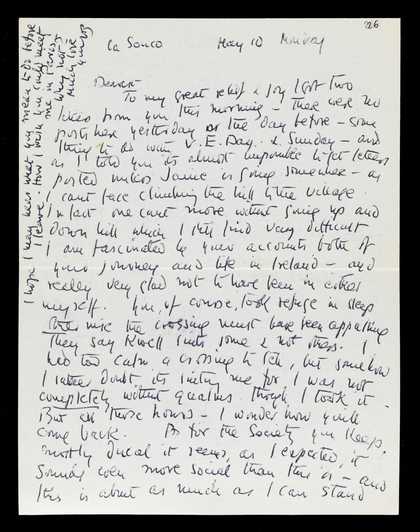 26
La Souco May 10 Monday
Dearest
To my great relief & joy I got two
letters from you this morning – there were no
posts here yesterday or the day before – some
thing to do with V.E. Day & Sunday – and
as I told you it's almost impossible to get letters
posted unless Janie is going somewhere – as
I can't face climbing the hill to the village.
In fact one can't move without going up and
down hill which I still find very difficult
I am fascinated by your accounts both of
your journey and life in Ireland – and
really very glad not to have been in either
myself. You, of course, took refuge in sleep
the crossing must have been appalling
They say Kwell suits some & not others. I
had too calm a crossing to tell, but somehow
I rather doubt its suiting me for I was not
completely without qualms though I took it.
But all those hours – I wonder how you'll
come back. As for the Society you keep,
mostly ducal it seems, as I expected, it
sounds even more social than this is – and
this is about as much as I can stand
I hope I may hear what you mean to do before
I leave. How I wish you could meet
me in Paris.
Why not?
Much love